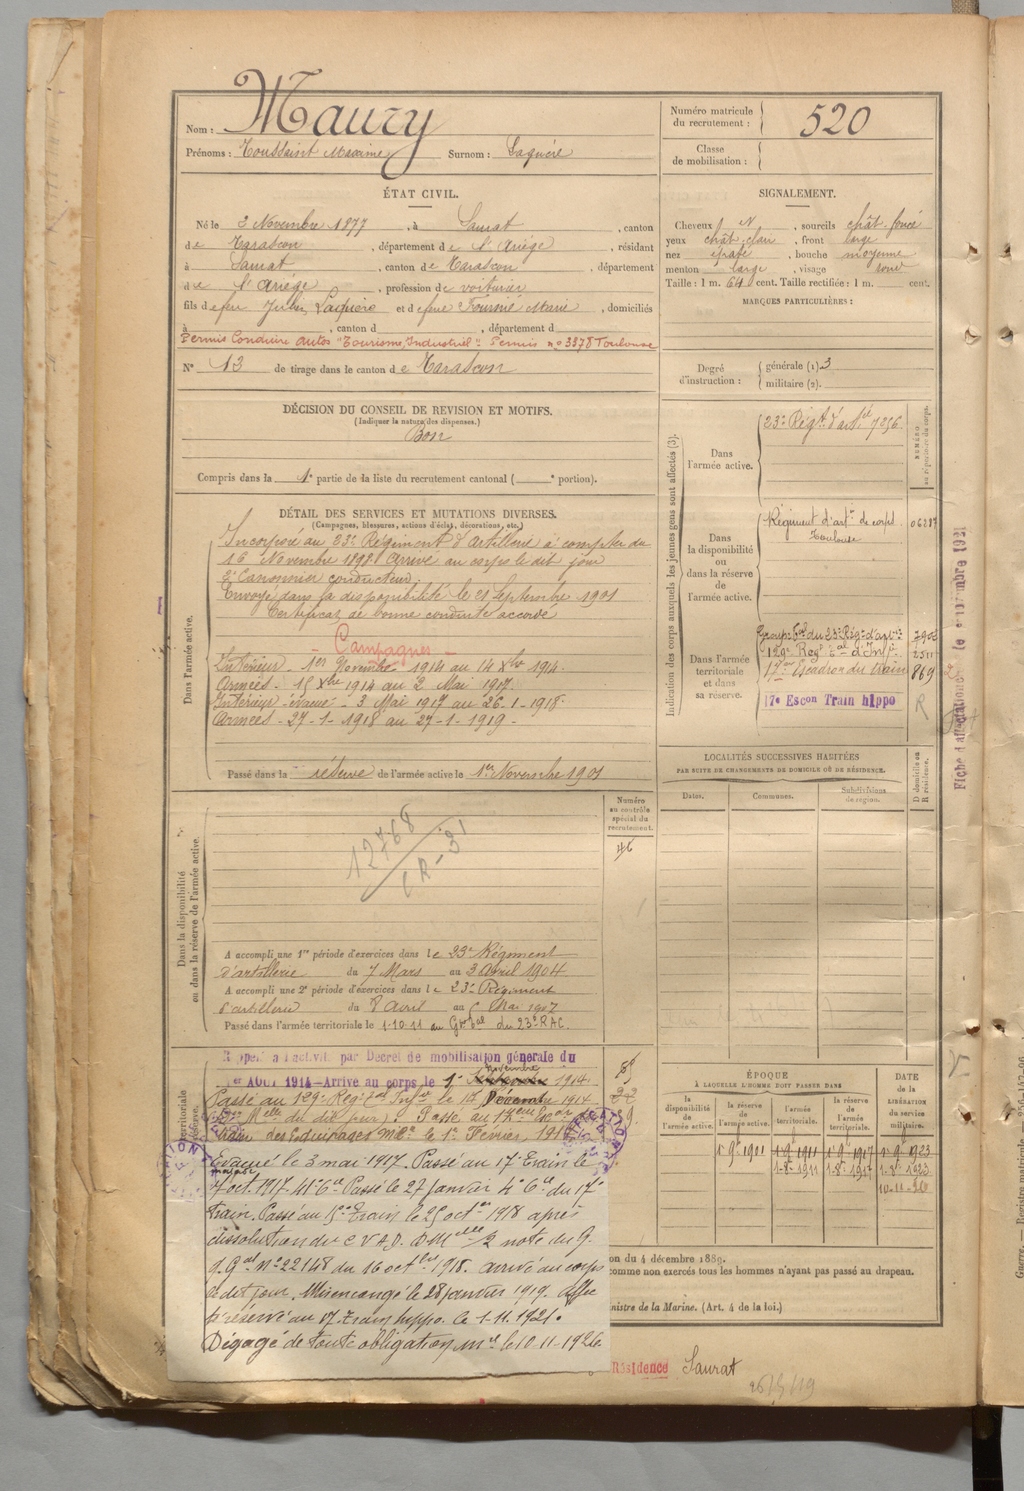 Nom : Maury
Prénoms : Toussaint Maxime Surnom : Laquière
Numéro matricule
du recrutement : 520
Classe
de mobilisation :
ÉTAT CIVIL.
Né le 2 Novembre 1877, à Saurat, canton
de Tarascon, département de l'Ariège, résidant
à Saurat, canton de Tarascon, département
de l'Ariège, profession de voiturier
fils de feu Julien Laquière et de feue Fournié Marie, domiciliés
à , canton d , département d
Permis Conduire autos "Tourisme, Industriel" Permis no 3378 Toulouse
N° 13 de tirage dans le canton de Tarascon
SIGNALEMENT.
Cheveux N, sourcils chât. foncé
yeux chât. clair, front large
nez épaté, bouche moyenne
menton large, visage rond
Taille : 1 m. 64 cent. Taille rectifiée : 1 m. cent.
MARQUES PARTICULIÈRES :
Degré
d'instruction :
générale (1) 3
militaire (2).
DÉCISION DU CONSEIL DE REVISION ET MOTIFS.
(Indiquer la nature des dispenses.)
Bon
Compris dans la 1e partie de la liste du recrutement cantonal ( e portion).
DÉTAIL DES SERVICES ET MUTATIONS DIVERSES.
(Campagnes, blessures, actions d'éclat, décorations, etc.)
Dans l'armée active.
Incorporé au 23e Régiment d'artillerie à compter du
16 Novembre 1898. Arrivé au corps le dit jour
2e Canonnier conducteur.
Envoyé dans la disponibilité le 21 Septembre 1901
Certificat de bonne conduite accordé
- Campagnes -
Intérieur - 1er Novembre 1914 au 14 Xbre 1914.
Armées - 15 Xbre 1914 au 2 Mai 1917.
Intérieur évacué - 3 Mai 1917 au 26-1-1918.
Armées - 27-1-1918 au 27-1-1919.
Passé dans la réserve de l'armée active le 1er Novembre 1901
Indication des corps auxquels les jeunes gens sont affectés (3).
Dans
l'armée active.
23e Régt d'artie 7256
NUMÉRO
au répertoire du corps.
Dans
la disponibilité
ou
dans la réserve
de
l'armée active.
Régiment d'artie de corps
Toulouse
Dans l'armée
territoriale
et dans
sa réserve.
Groupe tal du 23e Rég. d'artie
129e Régt tal d'Inf.
17e Escadron du train 869
17e Escon Train hippo R
LOCALITÉS SUCCESSIVES HABITÉES
PAR SUITE DE CHANGEMENTS DE DOMICILE OU DE RÉSIDENCE.
Dates. Communes. Subdivisions
de région.
D domicile ou
R résidence.
Dans la disponibilité
ou dans la réserve de l'armée active.
Numéro
au contrôle
spécial du
recrutement.
46
12768
CR-31
A accompli une 1re période d'exercices dans le 23e Régiment
d'artillerie du 7 Mars au 3 Avril 1904
A accompli une 2e période d'exercices dans le 23e Régiment
d'artillerie du 8 Avril au 5 Mai 1907
Passé dans l'armée territoriale le 1-10-11 au Gr. tal du 23e RAC.
Rappelé à l'activité par Décret de mobilisation générale du
1er AOUT 1914 - Arrivé au corps le 1er Novembre 1914.
Passé au 129e Régt tal Infie le 15 Décembre 1914
Passé au 17eme Escon
train des Equipages Mres le 1er Février
Évacué le 3 mai 1917. Passé au 17e Train le
7 oct. 1917. 41e Cie Passé le 27 janvier 4e Cie du 17e
train. Passé au 15e Train le 25 octre 1918 après
dissolution du C.V.A.D. note du G.
Q.Gal no 22148 du 16 octbre 1918. arrivé au corps
le dit jour. Mis en congé le 28 janvier 1919. Affec
té réserve au 17e Train hippo. le 1-11-1921.
Dégagé de toute obligation mre le 10-11-1926
ÉPOQUE
À LAQUELLE L'HOMME DOIT PASSER DANS
la
disponibilité
de
l'armée active.
la réserve
de
l'armée active.
l'armée
territoriale.
la réserve
de
l'armée
territoriale.
DATE
de la
LIBÉRATION
du service
militaire.
1-9bre 1901 1-9-1911 1-9-1917 1-9-1923
1-8-1911 1-8-1917 1-8-1923
10-11-26
on du 4 décembre 1889.
comme non exercés tous les hommes n'ayant pas passé au drapeau.
nistre de la Marine. (Art. 4 de la loi.)
Résidence Saurat
Fiche d'affectation le